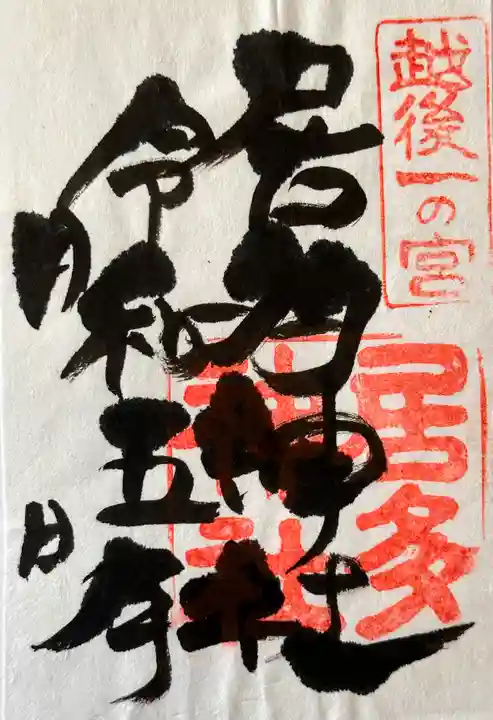 越後一の宮
居多神社
居多神社
令和五年
月
日